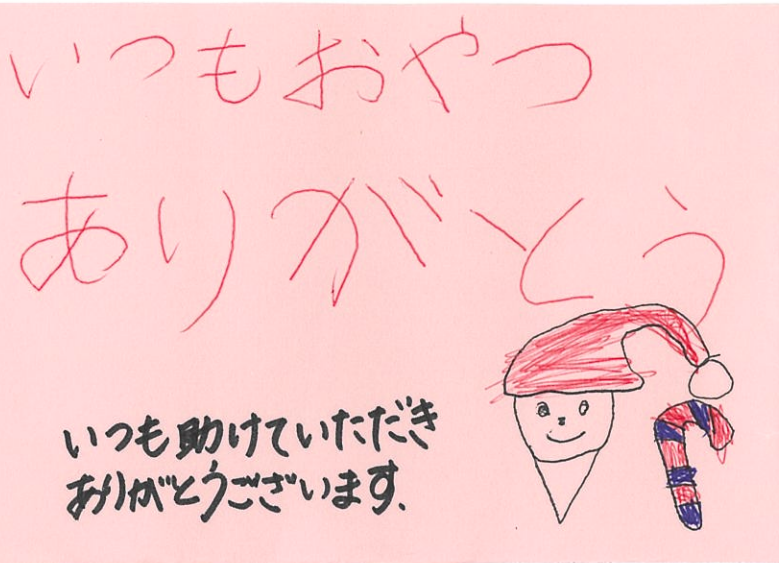 いつもおやつ
ありがとう
いつも助けていただき
ありがとうございます.